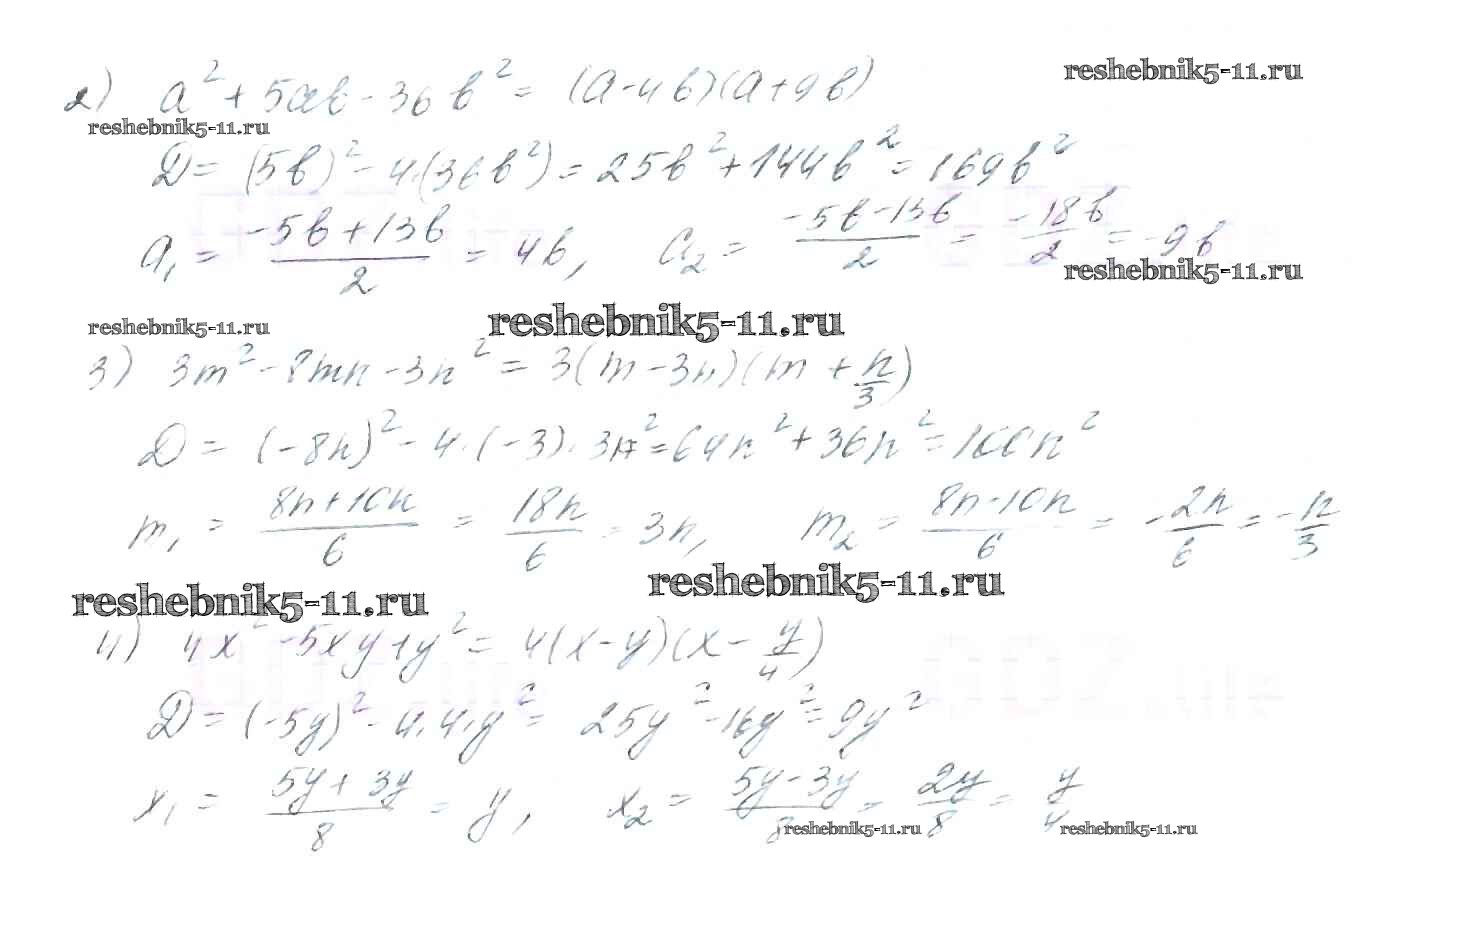 2) a² + 5ab - 36b² = (a - 4b)(a + 9b)
reshebnik5-11.ru
reshebnik5-11.ru
D = (5b)² - 4·(36b²) = 25b² + 144b² = 169b²
a₁ = (-5b + 13b)/2 = 4b, a₂ = (-5b - 13b)/2 = -18b/2 = -9b
reshebnik5-11.ru
reshebnik5-11.ru
reshebnik5-11.ru
3) 3m² - 8mn - 3n² = 3(m - 3n)(m + n/3)
D = (-8n)² - 4·(-3)·3n² = 64n² + 36n² = 100n²
m₁ = (8n + 10n)/6 = 18n/6 = 3n, m₂ = (8n - 10n)/6 = -2n/6 = -n/3
reshebnik5-11.ru
reshebnik5-11.ru
4) 4x² - 5xy + y² = 4(x - y)(x - y/4)
D = (-5y)² - 4·4·y² = 25y² - 16y² = 9y²
x₁ = (5y + 3y)/8 = y, x₂ = (5y - 3y)/8 = 2y/8 = y/4
reshebnik5-11.ru
reshebnik5-11.ru